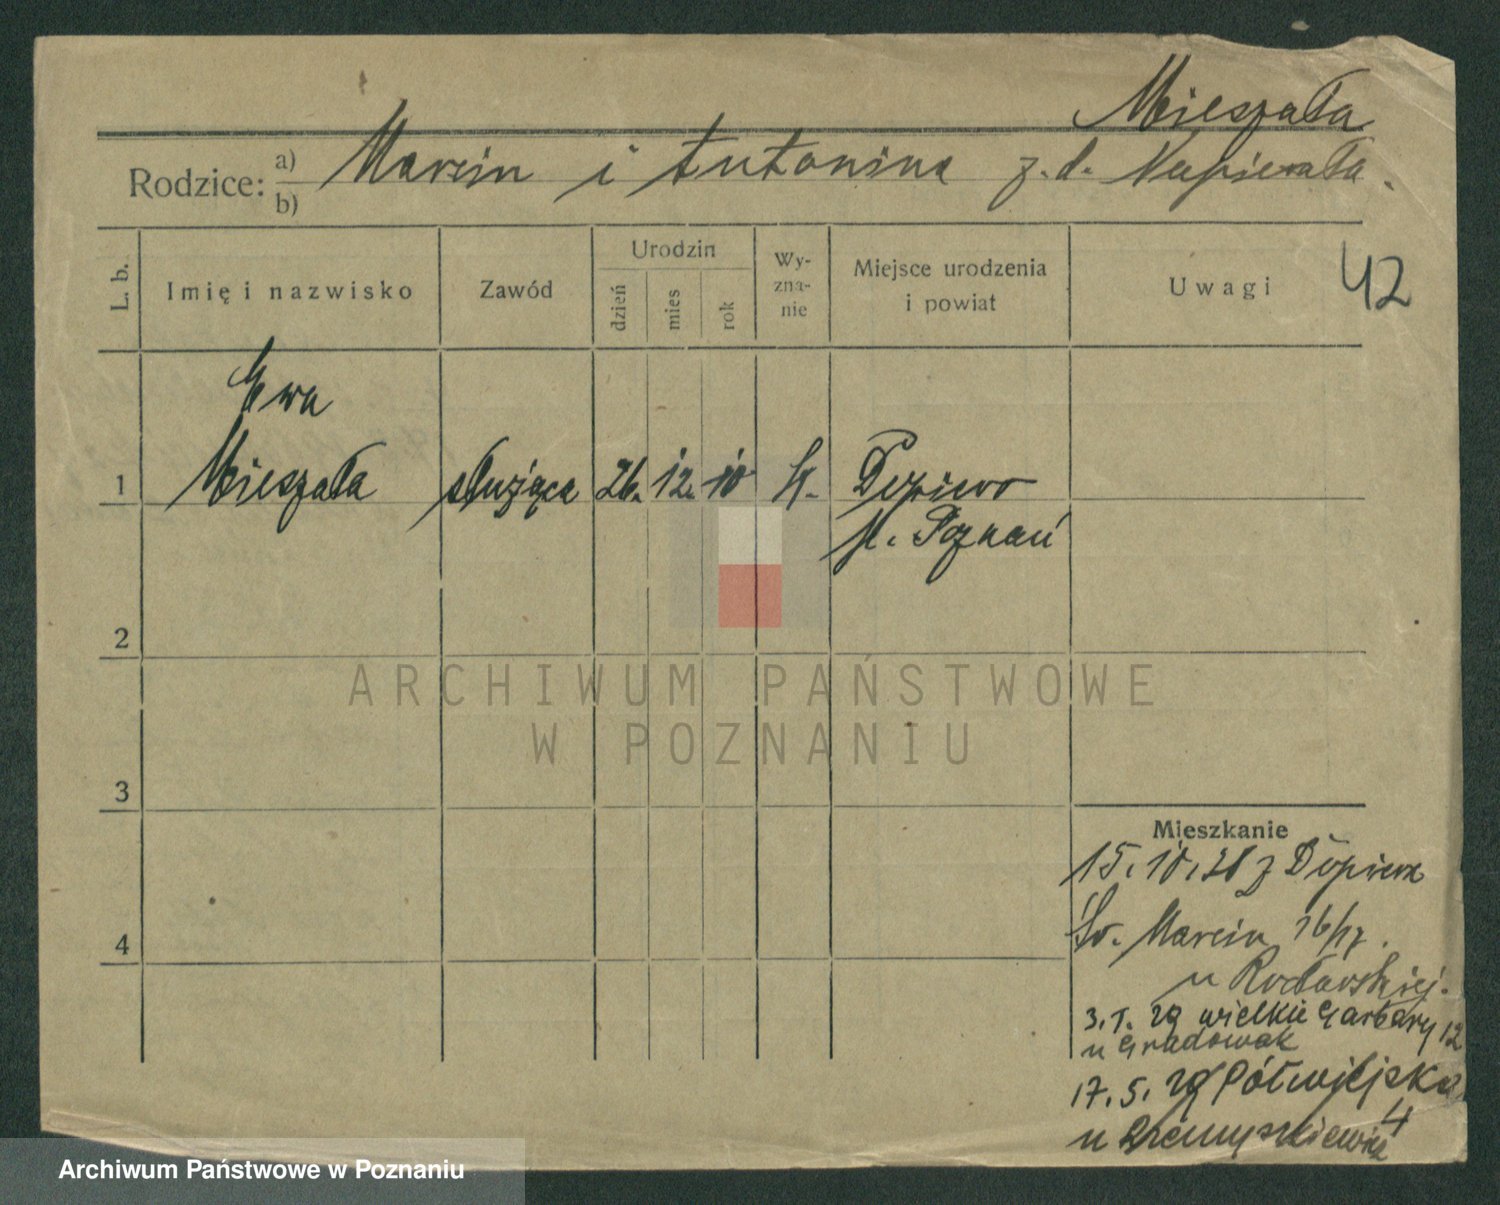 Mieszała
Rodzice: a) Marcin i Antonina z. d. Napierała.
b)
L. b. Imię i nazwisko Zawód Urodzin dzień mies rok Wyznanie Miejsce urodzenia i powiat Uwagi 42
Ewa
1 Mieszała służąca 26. 12. 10 k. Dopiewo
p. Poznań
2
ARCHIWUM PAŃSTWOWE
W POZNANIU
3
Mieszkanie
15. 10. 28 z Dopiewa
4 Św. Marcin 16/17.
u
3. 1. 29 wielkie Garbary 12
u Gradowak
17. 5. 29 Półwiejska 4
u
Archiwum Państwowe w Poznaniu